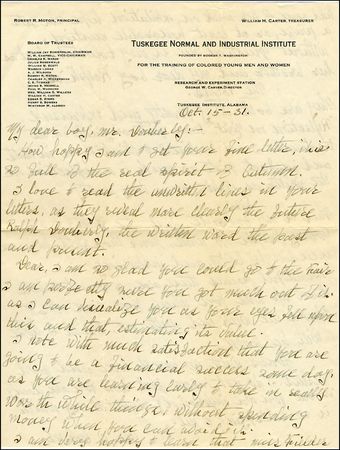 ROBERT R. MOTON, PRINCIPAL
WILLIAM H. CARTER, TREASURER
BOARD OF TRUSTEES
TUSKEGEE NORMAL AND INDUSTRIAL INSTITUTE
FOUNDED BY BOOKER T. WASHINGTON
FOR THE TRAINING OF COLORED YOUNG MEN AND WOMEN
RESEARCH AND EXPERIMENT STATION
GEORGE W. CARVER, DIRECTOR
TUSKEGEE INSTITUTE, ALABAMA
Oct. 15-31.
My dear boy, Mr.
How happy I am to get your fine letter, it is
so full of the real spirit of Autumn.
I love to read the unwritten lines in your
letters, as they reveal more clearly the future
the written word the past
and present.
Dear, I am so glad you could go to the fair
I am sure you got much out of it.
as I can visualize you as your eyes fell upon
this and that, estimating its value.
I note with much satisfaction that you are
going to be a financial success some day,
as you are learning early to take in really
worth while things, without spending
money when you can avoid it.
I am very happy to learn that